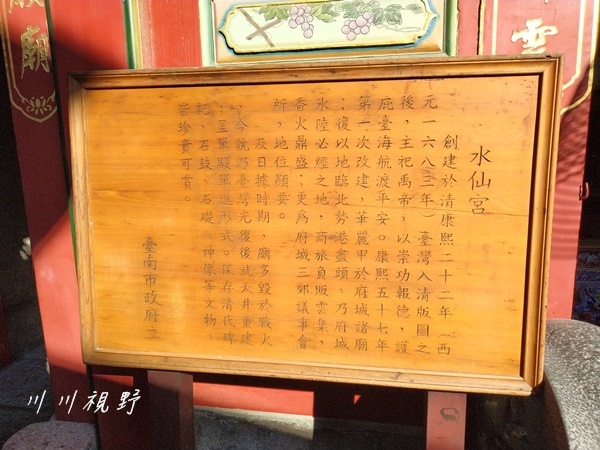 水仙宮
創建於清康熙二十二年（西
元一六八三年）臺灣入清版圖之
後，主祀禹帝，以崇功報德，護
庇臺海航渡平安。康熙五十七年
第一次改建，華麗甲於府城諸廟
；復以地臨北勢港盡頭，乃府城
水陸必經之地，商旅負販雲集，
香火鼎盛；更為府城三郊議事會
所，地位顯要。
及日據時期，廟多毀於戰火
，今貌乃臺灣光復後就太井重建
，呈單殿單進形式。保存清代碑
記、石鼓、石礎、神像等文物，
皆珍貴可賞。
臺南市政府立
廟
雲
川川視野